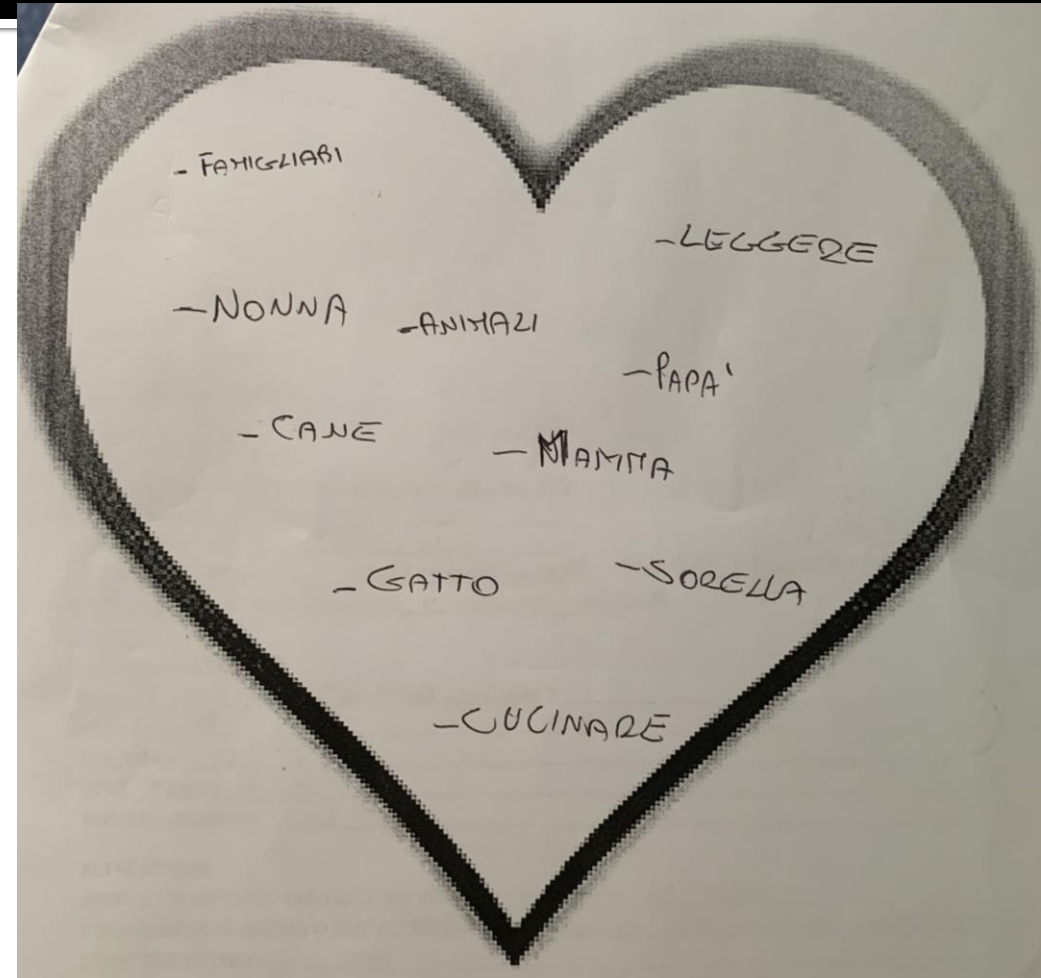 - FAMIGLIARI
- LEGGERE
- NONNA
- ANIMALI
- PAPA'
- CANE
- MAMMA
- GATTO
- SORELLA
- CUCINARE